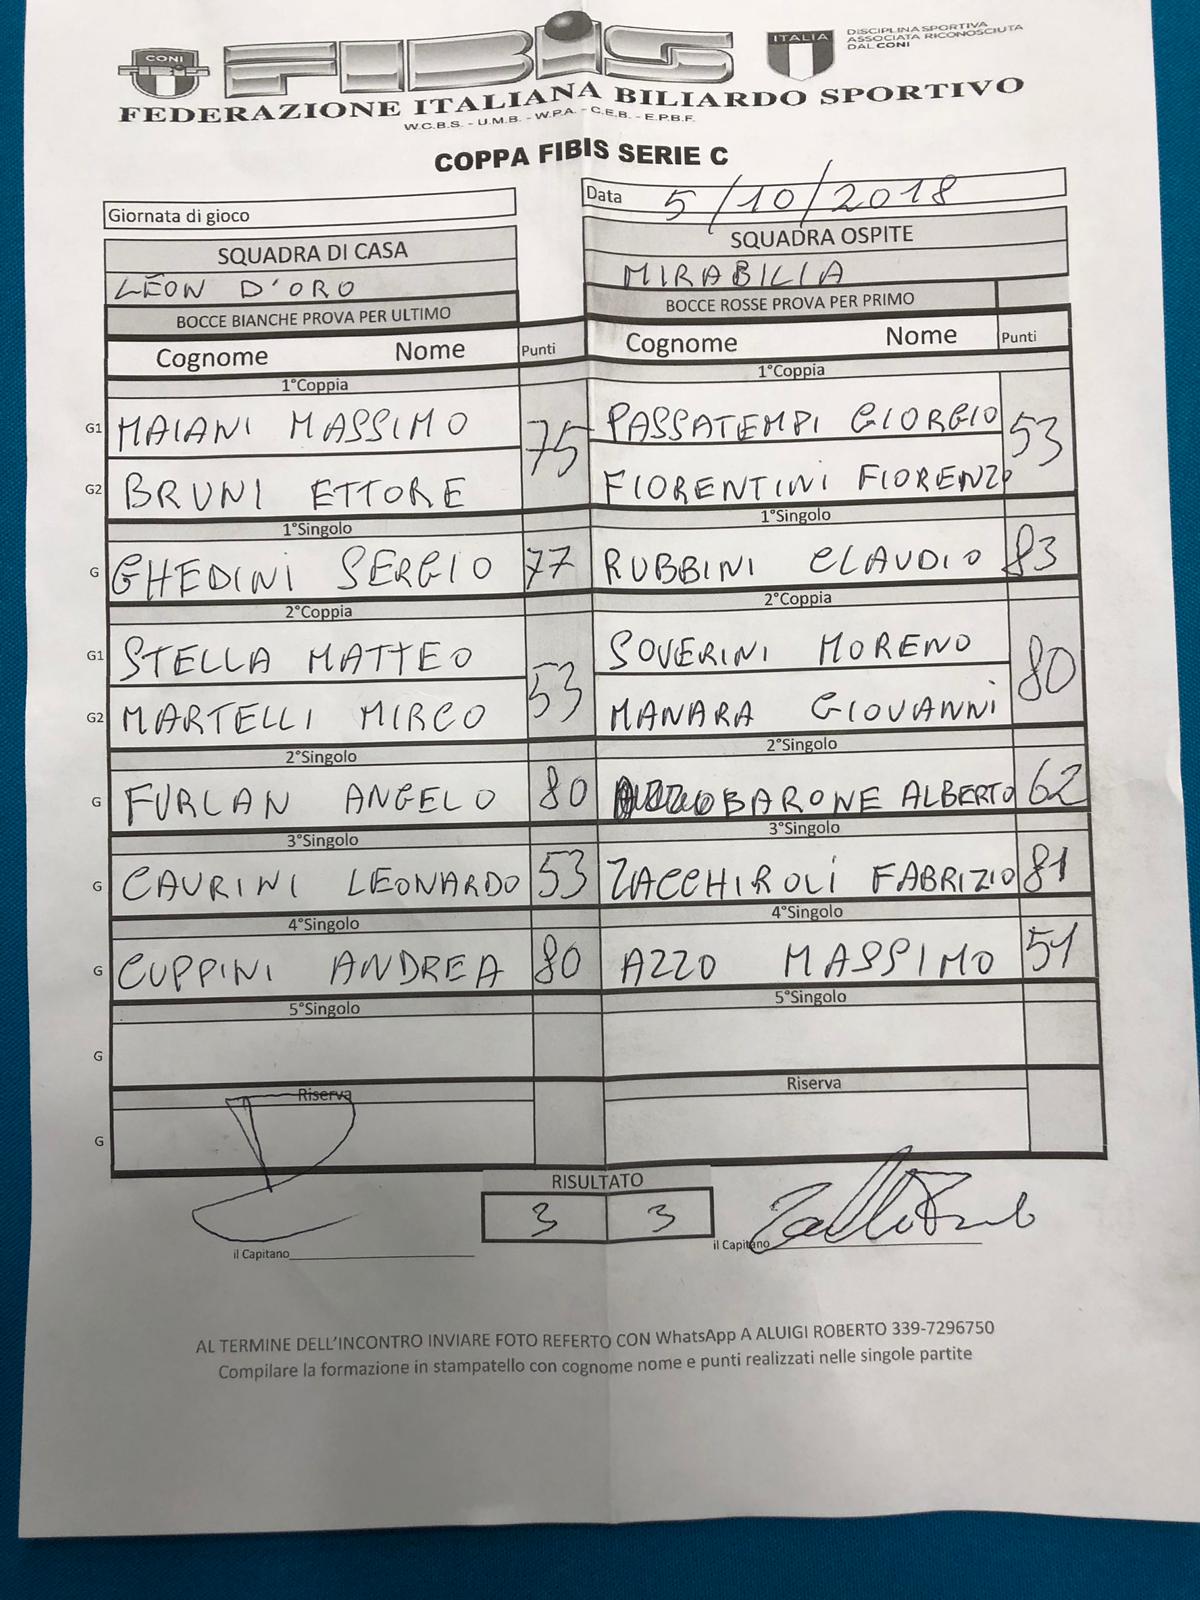 CONI
FIBiS
ITALIA
DISCIPLINA SPORTIVA
ASSOCIATA RICONOSCIUTA
DAL CONI
FEDERAZIONE ITALIANA BILIARDO SPORTIVO
W.C.B.S. - U.M.B. - W.P.A. - C.E.B. - E.P.B.F.
COPPA FIBIS SERIE C
Giornata di gioco
Data 5/10/2018
SQUADRA DI CASA
SQUADRA OSPITE
LEON D'ORO
MIRABILIA
BOCCE BIANCHE PROVA PER ULTIMO
BOCCE ROSSE PROVA PER PRIMO
Cognome Nome Punti
Cognome Nome Punti
1°Coppia
1°Coppia
G1 MAIANI MASSIMO 75
PASSATEMPI GIORGIO 53
G2 BRUNI ETTORE
FIORENTINI FIORENZO
1°Singolo
1°Singolo
G GHEDINI SERGIO 77
RUBBINI CLAUDIO 83
2°Coppia
2°Coppia
G1 STELLA MATTEO 53
SOVERINI MORENO 80
G2 MARTELLI MIRCO
MANARA GIOVANNI
2°Singolo
2°Singolo
G FURLAN ANGELO 80
BARONE ALBERTO 62
3°Singolo
3°Singolo
G CAURINI LEONARDO 53
ZACCHIROLI FABRIZIO 81
4°Singolo
4°Singolo
G CUPPINI ANDREA 80
AZZO MASSIMO 51
5°Singolo
5°Singolo
G
Riserva
Riserva
G
RISULTATO
3 3
il Capitano
il Capitano
AL TERMINE DELL'INCONTRO INVIARE FOTO REFERTO CON WhatsApp A ALUIGI ROBERTO 339-7296750
Compilare la formazione in stampatello con cognome nome e punti realizzati nelle singole partite